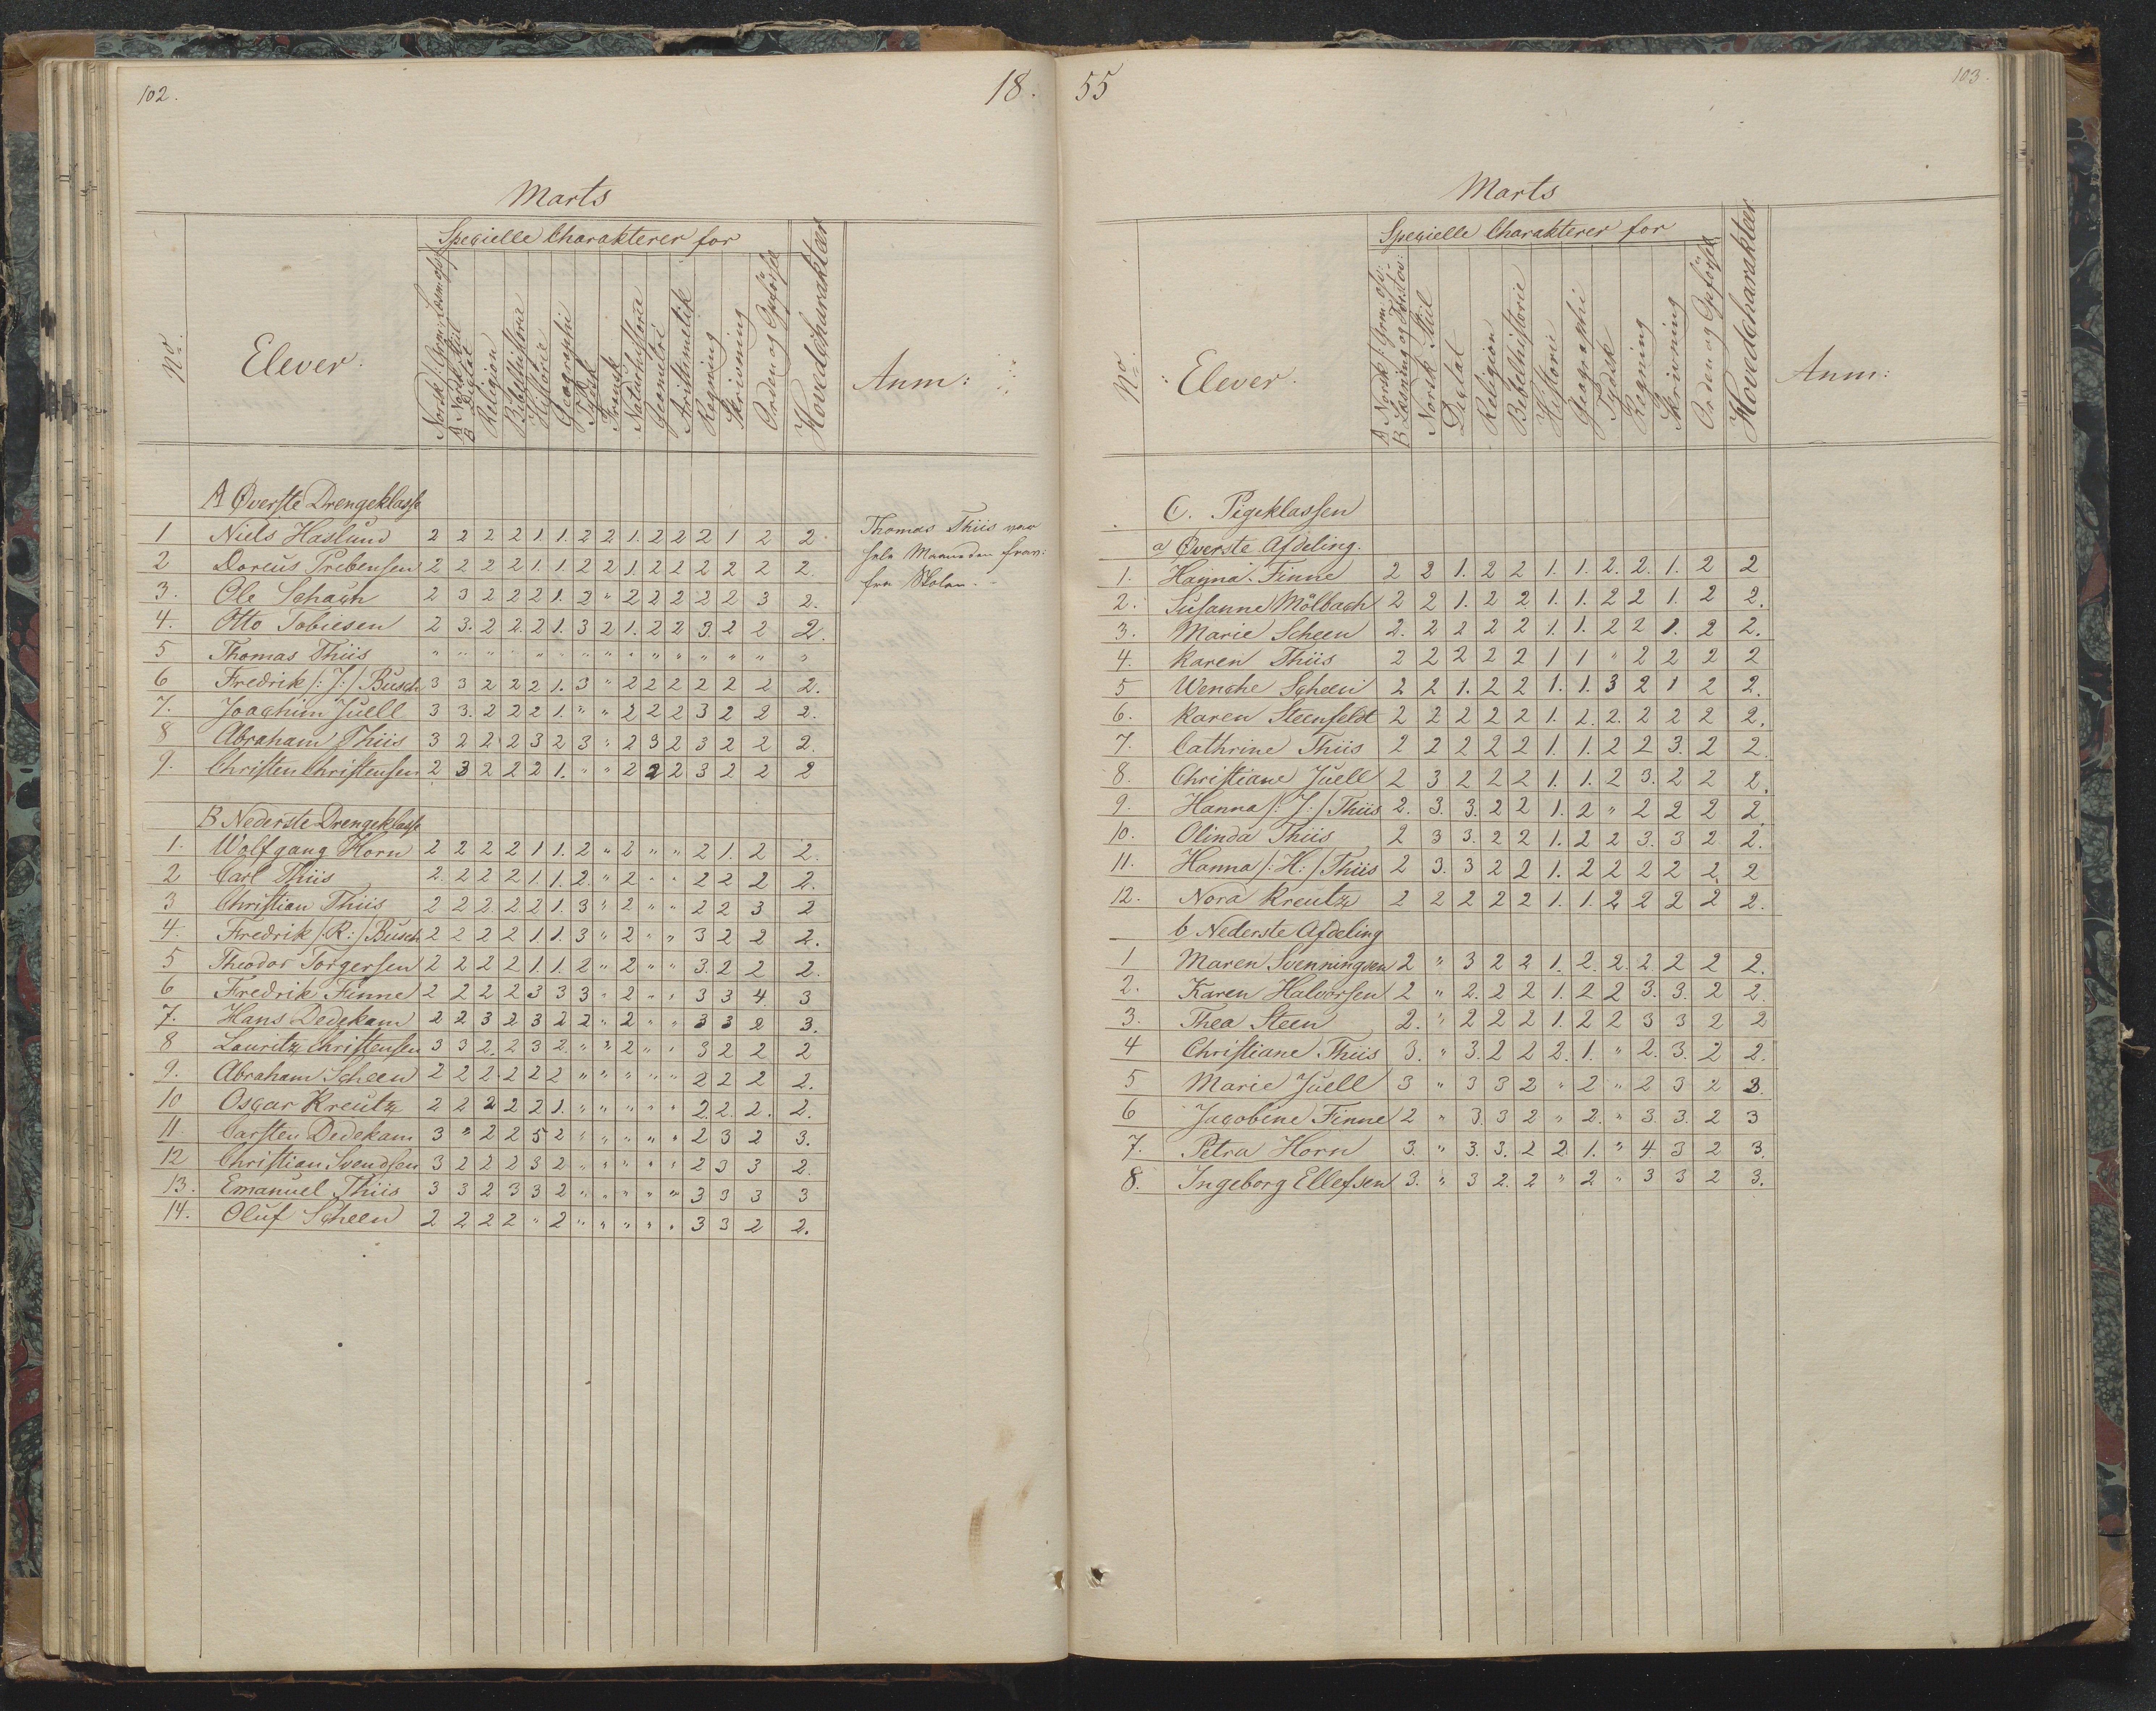 102.
18.
Marts
No.
Elever.
Specielle Charakterer for
Religion
Bibelhistorie
Historie
Geographi
Tydsk
Fransk
Naturhistorie
Geometri
Arithmetik
Regning
Skrivning
Orden og Opførsel
Hovedcharakteer
Anm:
A Øverste Drengeklasse
1 Niels Haslund 2 2 2 2 1. 1. 2 2 1. 2 2 2 1 2 2.
2 Doreus Prebensen 2 2 2 2 1. 1. 2 2 1. 2 2 2 2 2 2.
3. Ole Schach 2 3 2 2 2 1. 2 " 2 2 2 2 2 3 2.
4. Otto Tobiesen 2 3. 2 2. 2 1. 3 2 1. 2 2 3. 2 2 2.
5 Thomas Thiis " " " " " " " " " " " " " " "
6 Fredrik /: J: / Busch 3 3 2 2 2 1. 3 " 2 2 2 2 2 2 2.
7. Joachim Juell 3 3. 2 2 2 1. " " 2 2 2 3 2 2 2.
8 Abraham Thiis 3 2 2 2 3 2 3 " 2 3 2 3 2 2 2.
9. Christen Christensen 2 3 2 2 2 1. " " 2 2 2 3 2 2 2
Thomas Thiis var
hele Maaneden frav:
fra Skolen.
B Nederste Drengeklasse
1. Wolfgang Horn 2 2 2 2 1 1. 2 " 2 " " 2 1. 2 2.
2 Carl Thiis 2. 2 2 2 1. 1. 2. " 2 " " 2 2 2 2.
3 Christian Thiis 2 2 2 2 2 1. 3 " 2 " " 2 2 3 2
4. Fredrik /: R: / Busch 2 2 2 2 1. 1. 3 " 2 " " 3 2 2 2.
5 Theodor Torgersen 2 2 2 2 1. 1. 2 " 2 " " 3. 2 2 2.
6 Fredrik Finne 2 2 2 2 3 3 3 " 2 " " 3 3 4. 3
7. Hans Dedekam 2 2 3 2 3 2 2 " 2 " " 3 3 2 3.
8 Lauritz Christensen 3 3 2. 2 3 2. " " 2 " " 3 2 2 2
9. Abraham Scheen 2 2 2. 2 2 2 " " " " " 2 2 2 2.
10 Oscar Kreutz 2 2 2 2 2 1. " " " " " 2. 2. 2. 2.
11. Carsten Dedekam 3 " 2 2 5 2 " " " " " 2 3 2 3.
12 Christian Svendsen 3 2 2 2 3 2 " " " " " 2 3 3 2.
13. Emanuel Thiis 3 3 2 3 3 2 " " " " " 3 3 3 3
14. Oluf Scheen 2 2 2 2 " 2 " " " " " 3 3 2 2.
55
103.
Marts
No.
Elever.
Specielle Charakterer for
A Norsk /: Grm: osv:
B Læsning og Forstov:
Norsk Stiil
Dictat
Religion
Bibelhistorie
Historie
Geographi
Tydsk
Regning
Skrivning
Orden og Opførsel
Hovedcharakteer
Anm:
C. Pigeklassen
a) Øverste Afdeling.
1. Hanna Finne 2 2 1. 2 2 1. 1. 2. 2. 1. 2 2
2. Susanne Mölbach 2 2 1. 2 2 1. 1. 2 2 1. 2 2.
3. Marie Scheen 2. 2 2 2 2 1. 1. 2 2 1. 2 2.
4. Karen Thiis 2 2 2 2 2 1 1 " 2 2 2 2
5 Wenche Scheen 2 2 1. 2 2 1. 1. 3 2 1 2 2.
6. Karen Steenfeldt 2 2 2 2 2 1. 2. 2. 2 2 2 2.
7. Cathrine Thiis 2 2 2 2 2 1. 1. 2 2 3. 2 2.
8. Christiane Juell 2 3 2 2 2 1. 1. 2 3. 2 2 2.
9. Hanna /: J: / Thiis 2. 3. 3. 2 2 1. 2 " 2 2 2 2.
10. Olinda Thiis 2 3 3. 2 2 1. 2 2 3. 3 2 2.
11. Hanna /: H: / Thiis 2 3. 3 2 2 1. 2 2 2 2 2. 2
12. Nora Kreutz 2 2 2 2 2 1. 1. 2 2 2 2 2.
b Nederste Afdeling
1 Maren Svenningsen 2 " 3 2 2 1. 2. 2. 2. 2 2 2.
2. Karen Halvorsen 2 " 2. 2 2 1. 2 2 3. 3. 2 2.
3. Thea Steen 2. " 2 2 2 1. 2 2 3 3 2 2
4 Christiane Thiis 3. " 3. 2 2 2. 1. " 2. 3. 2 2.
5 Marie Juell 3 " 3 3 2 " 2 " 2 3 2 3.
6 Jacobine Finne 2 " 3. 3 2 " 2. " 3. 3. 2 3
7. Petra Horn 3. " 3. 3. 2 2. 1. " 4 3 2 3.
8. Ingeborg Ellefsen 3. " 3 2. 2 " 2 " 3 3 2 3.